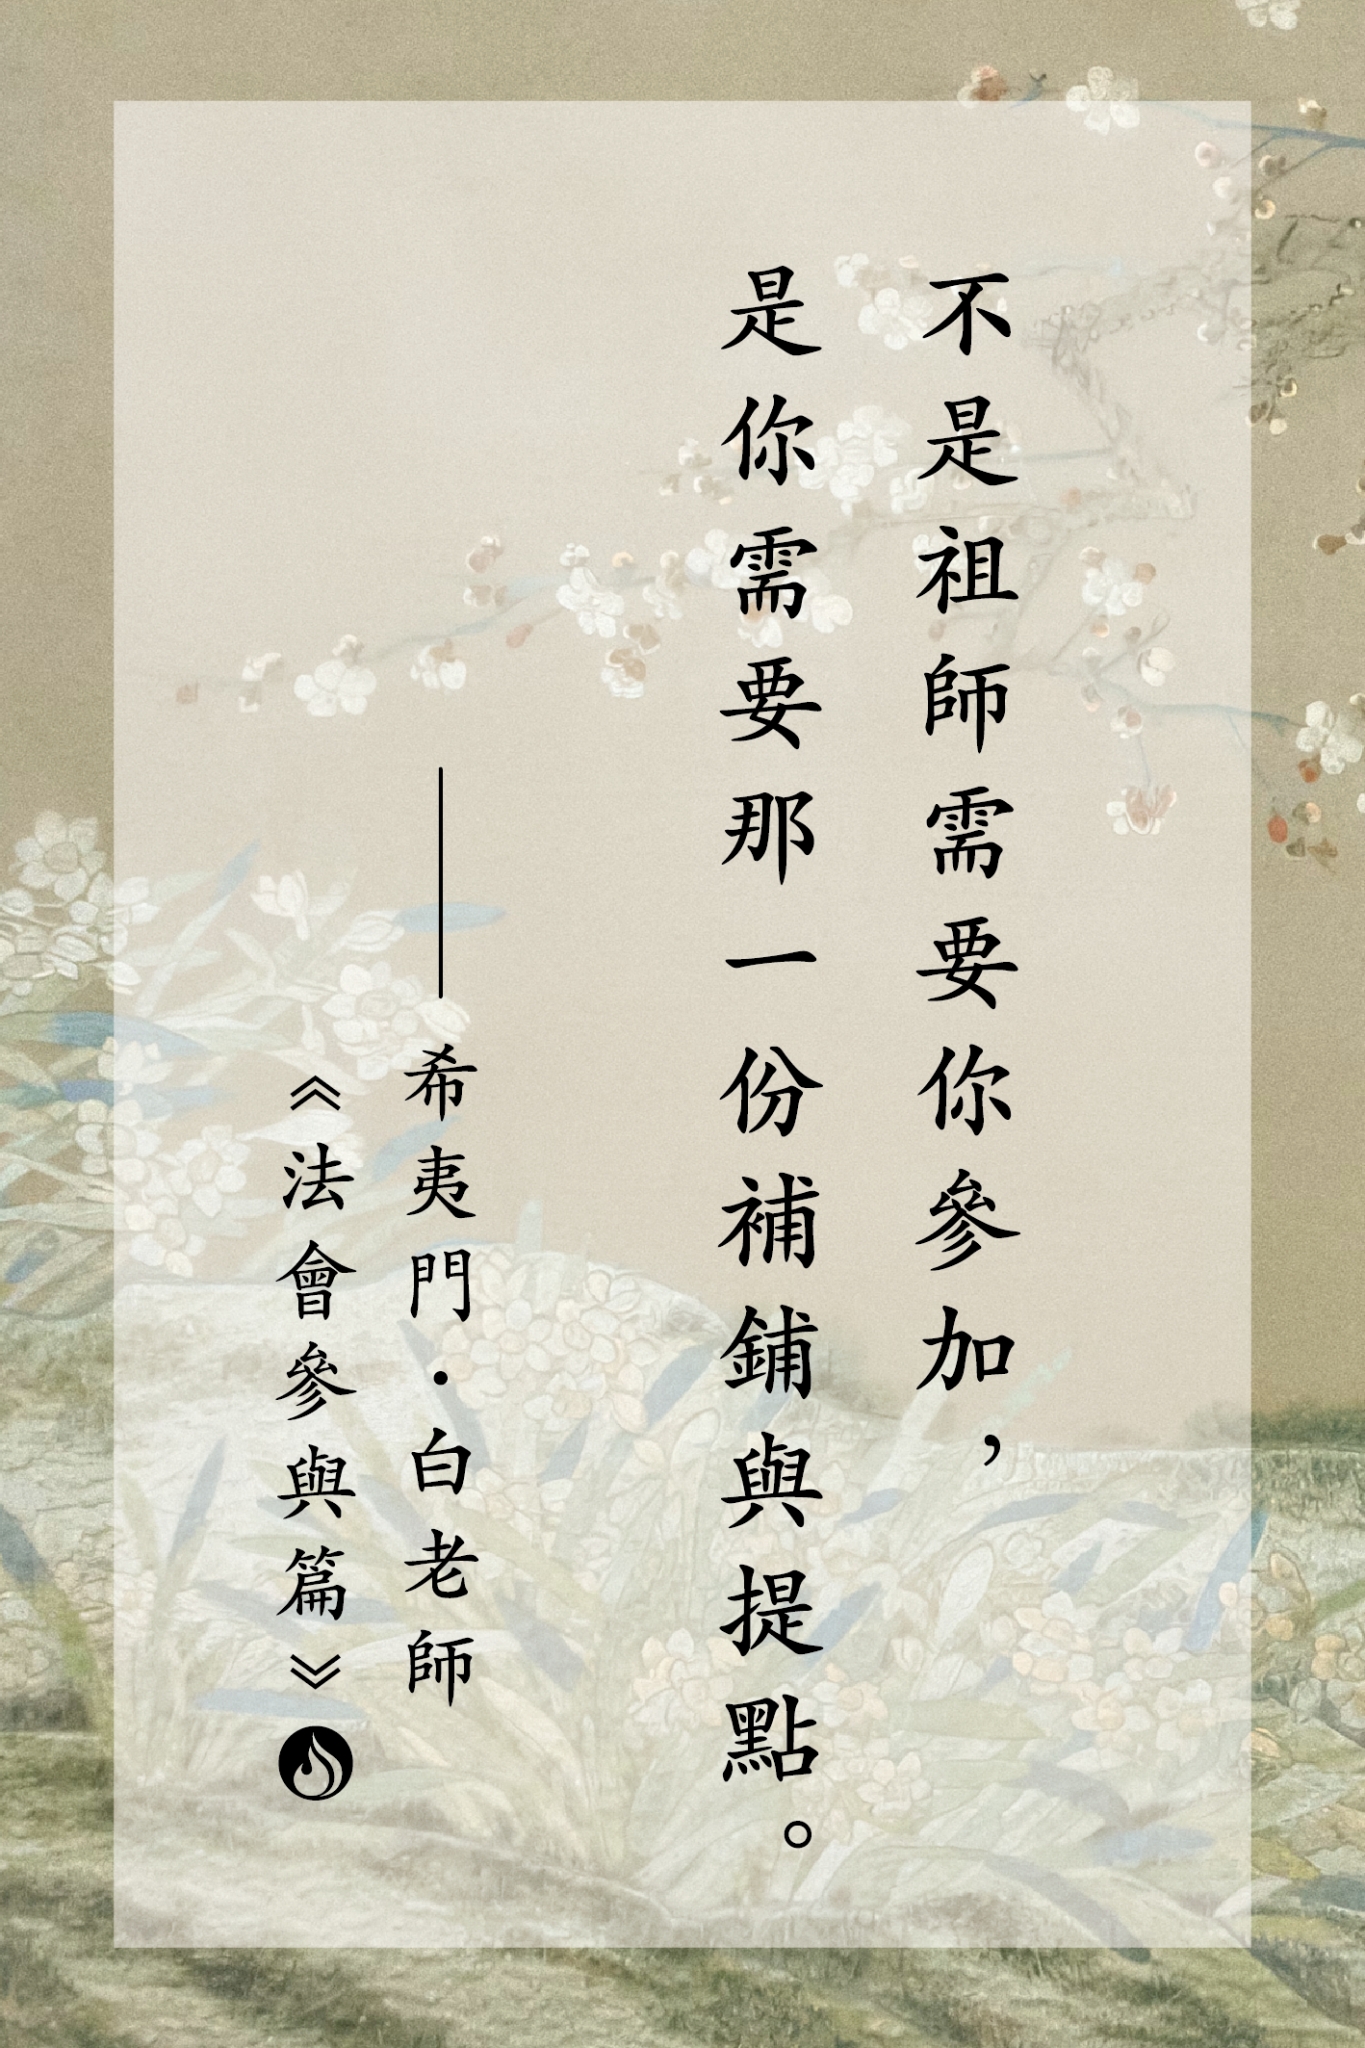 不是祖師需要你參加，
是你需要那一份補鋪與提點。
——希夷門·白老師
《法會參與篇》